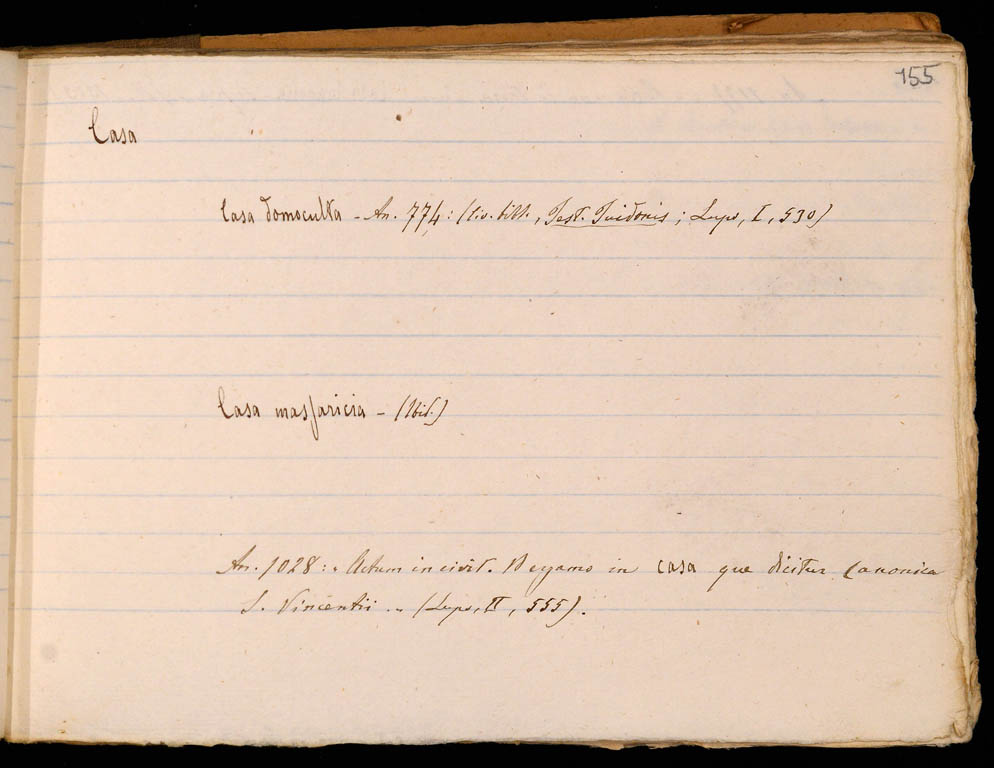 155
Casa
Casa domoculta - An. 774: (Civ. bibl., Test. Tuidonis; Lupo, I, 530)
Casa massaricia - (Ibid.)
An. 1028: "Actum in civit. Bergamo in casa que dicitur Canonica
S. Vincentii." (Lupo, II, 555).